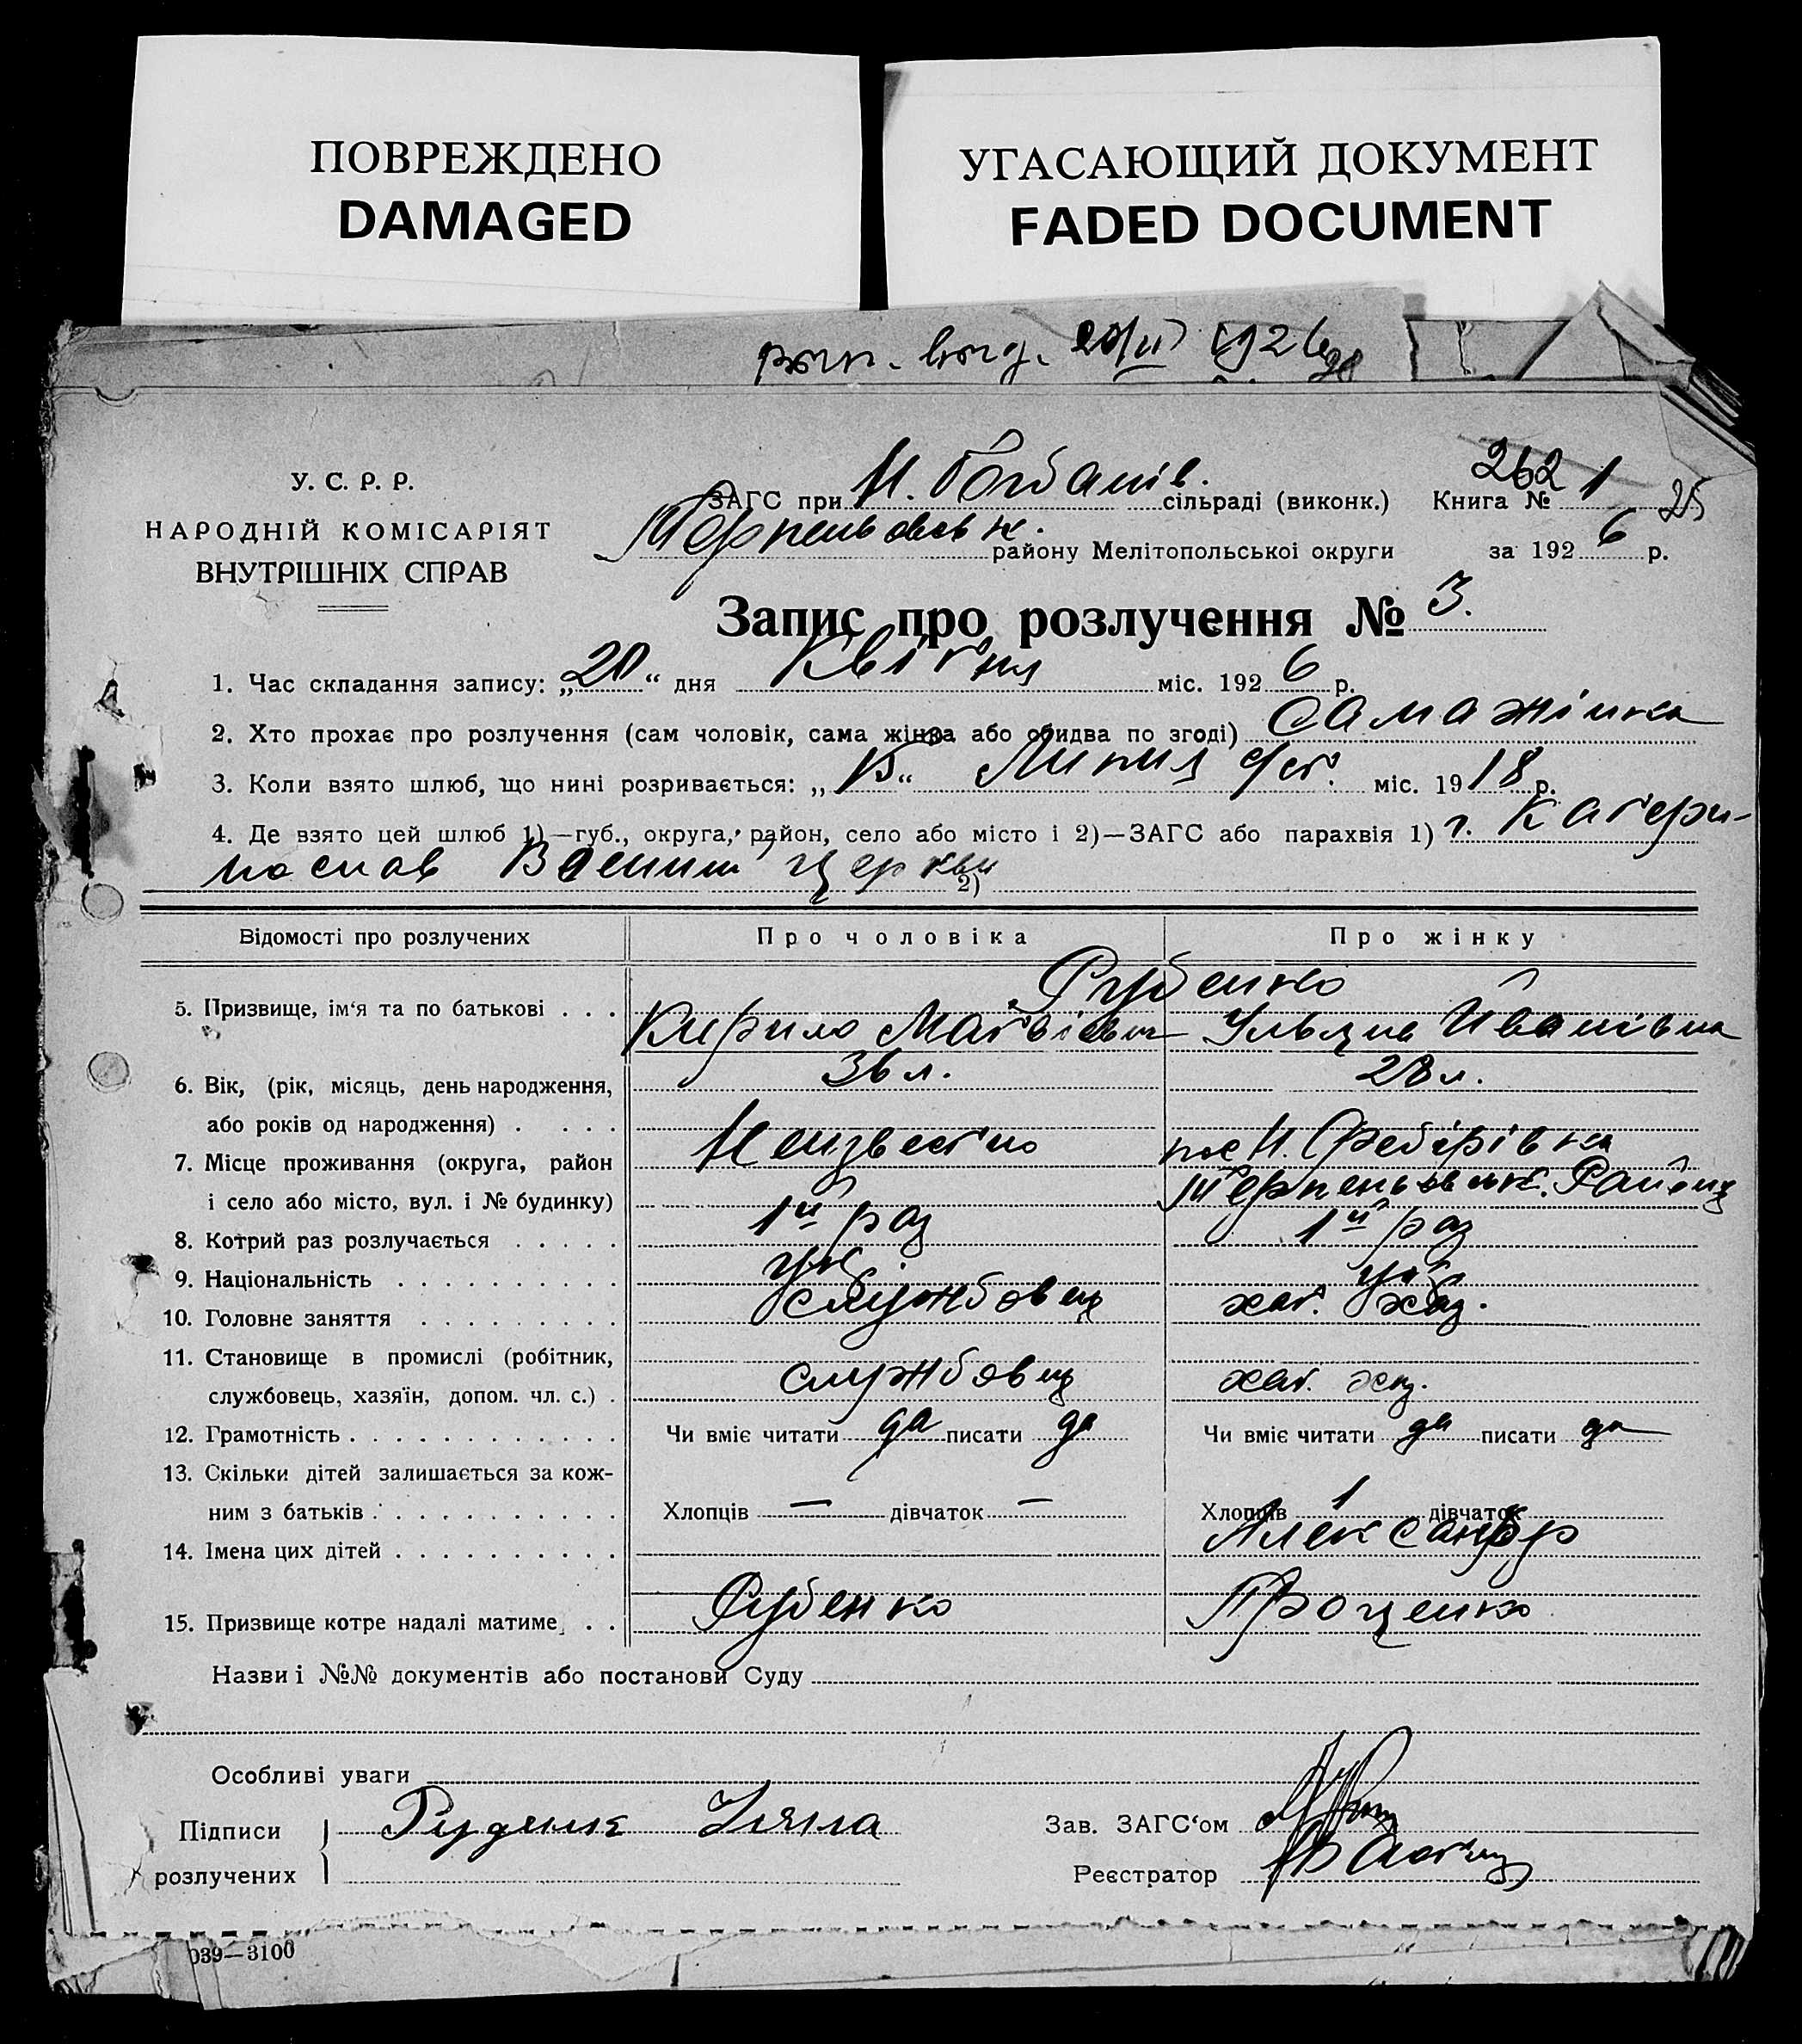 ПОВРЕЖДЕНО
DAMAGED
УГАСАЮЩИЙ ДОКУМЕНТ
FADED DOCUMENT
1926
У. С. Р. Р.
НАРОДНІЙ КОМІСАРІЯТ
ВНУТРІШНІХ СПРАВ
262
ЗАГС при Н. Богданів. сільраді (виконк.) Книга № 1
25
району Мелітопольської округи за 1926 р.
Запис про розлучення № 3.
1. Час складання запису: „20“ дня Квітня міс. 1926 р.
2. Хто прохає про розлучення (сам чоловік, сама жінка або обидва по згоді) сама жінка
3. Коли взято шлюб, що нині розривається: „ “ Липня ст. міс. 1918 р.
4. Де взято цей шлюб 1)—губ., округа, район, село або місто і 2)—ЗАГС або парахвія 1) г. Катери-
нослав церкви
2)
Відомості про розлучених Про чоловіка Про жінку
5. Призвище, ім‘я та по батькові . . .
Кирило Матвієвич Ульяна Иванівна
6. Вік, (рік, місяць, день народження, 36 л. 28 л.
або років од народження) . . . .
7. Місце проживання (округа, район Неизвестно пос. Н.
і село або місто, вул. і № будинку) Району
8. Котрий раз розлучається . . . . . 1й раз 1й раз
9. Національність . . . . . . . . . . . укр. укр.
10. Головне заняття . . . . . . . . . службовец хат. хаз.
11. Становище в промислі (робітник,
службовець, хазяїн, допом. чл. с.) . службовец хат. хаз.
12. Грамотність . . . . . . . . . . . . . Чи вміє читати да писати да Чи вміє читати да писати да
13. Скільки дітей залишається за кож-
ним з батьків . . . . . . . . . . . Хлопців — дівчаток — Хлопців 1 дівчаток
14. Імена цих дітей . . . . . . . . . . Александр
15. Призвище котре надалі матиме . . Проценко
Назви і №№ документів або постанови Суду
Особливі уваги
Підписи Уляна Зав. ЗАГС‘ом
розлучених Реєстратор
039—3100